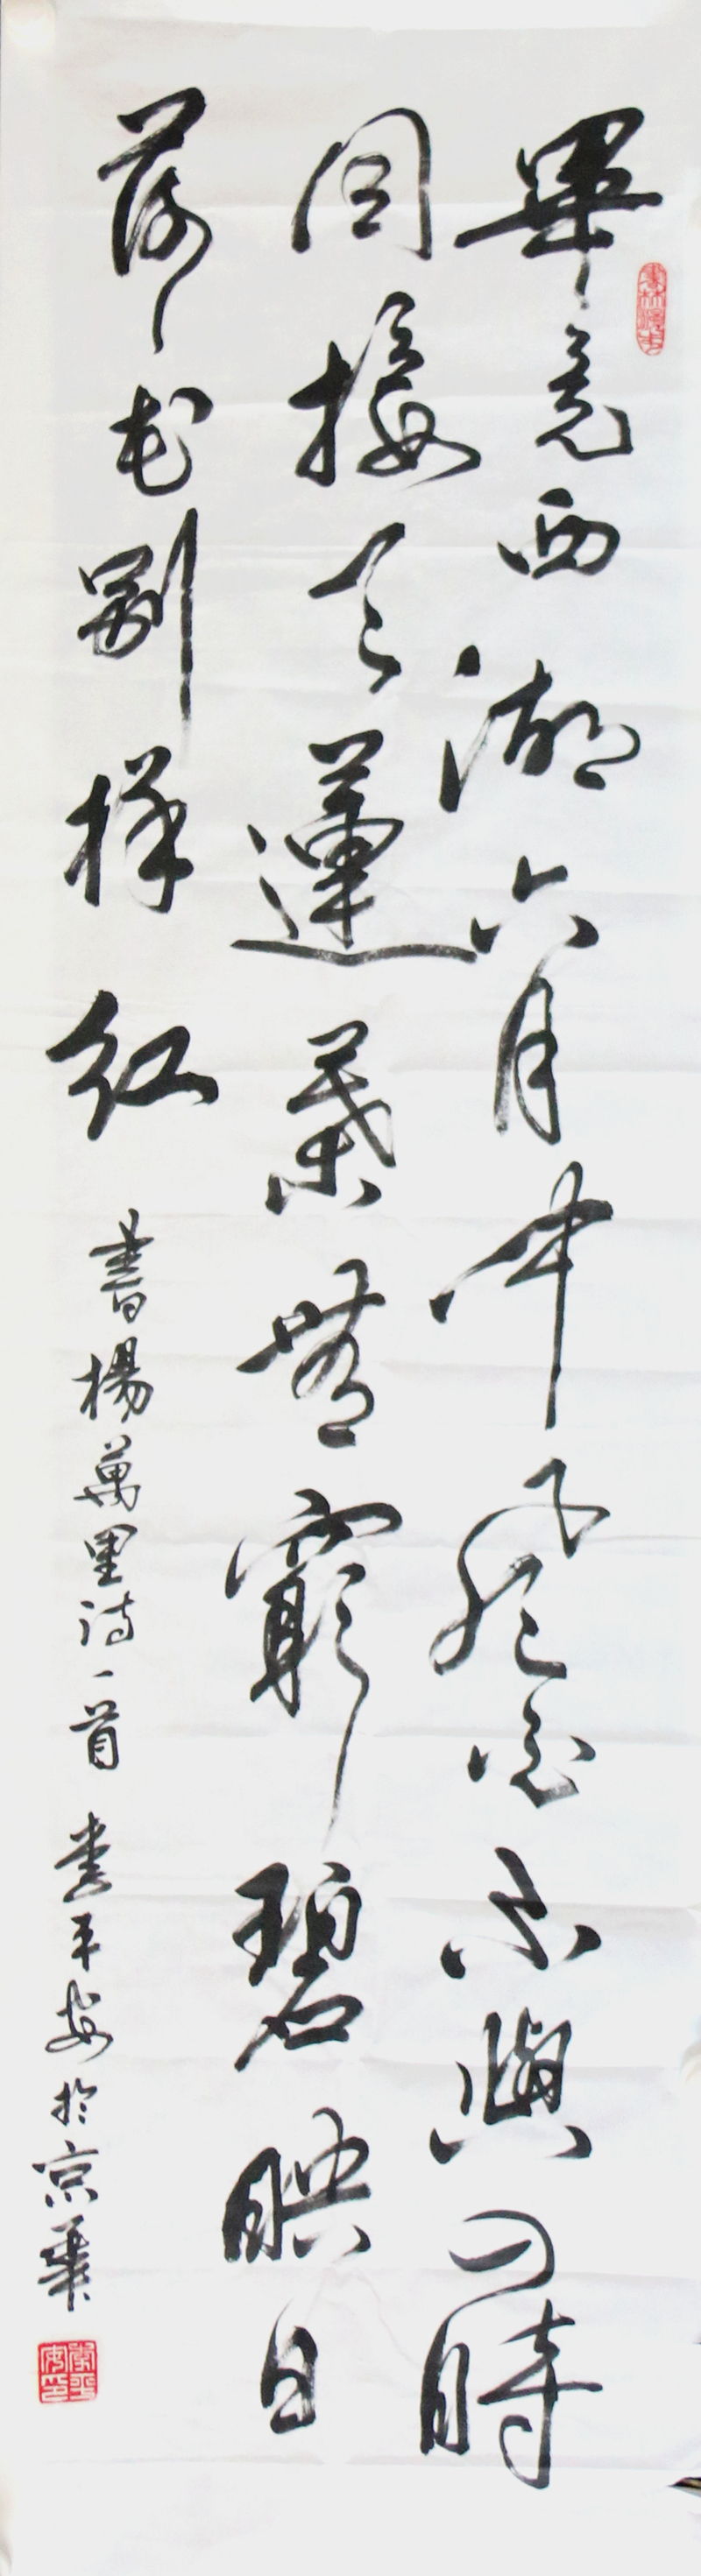 畢竟西湖六月中風光不與四時
同接天蓮葉無窮碧映日
荷花別樣紅 書楊萬里詩一首 平安於京華